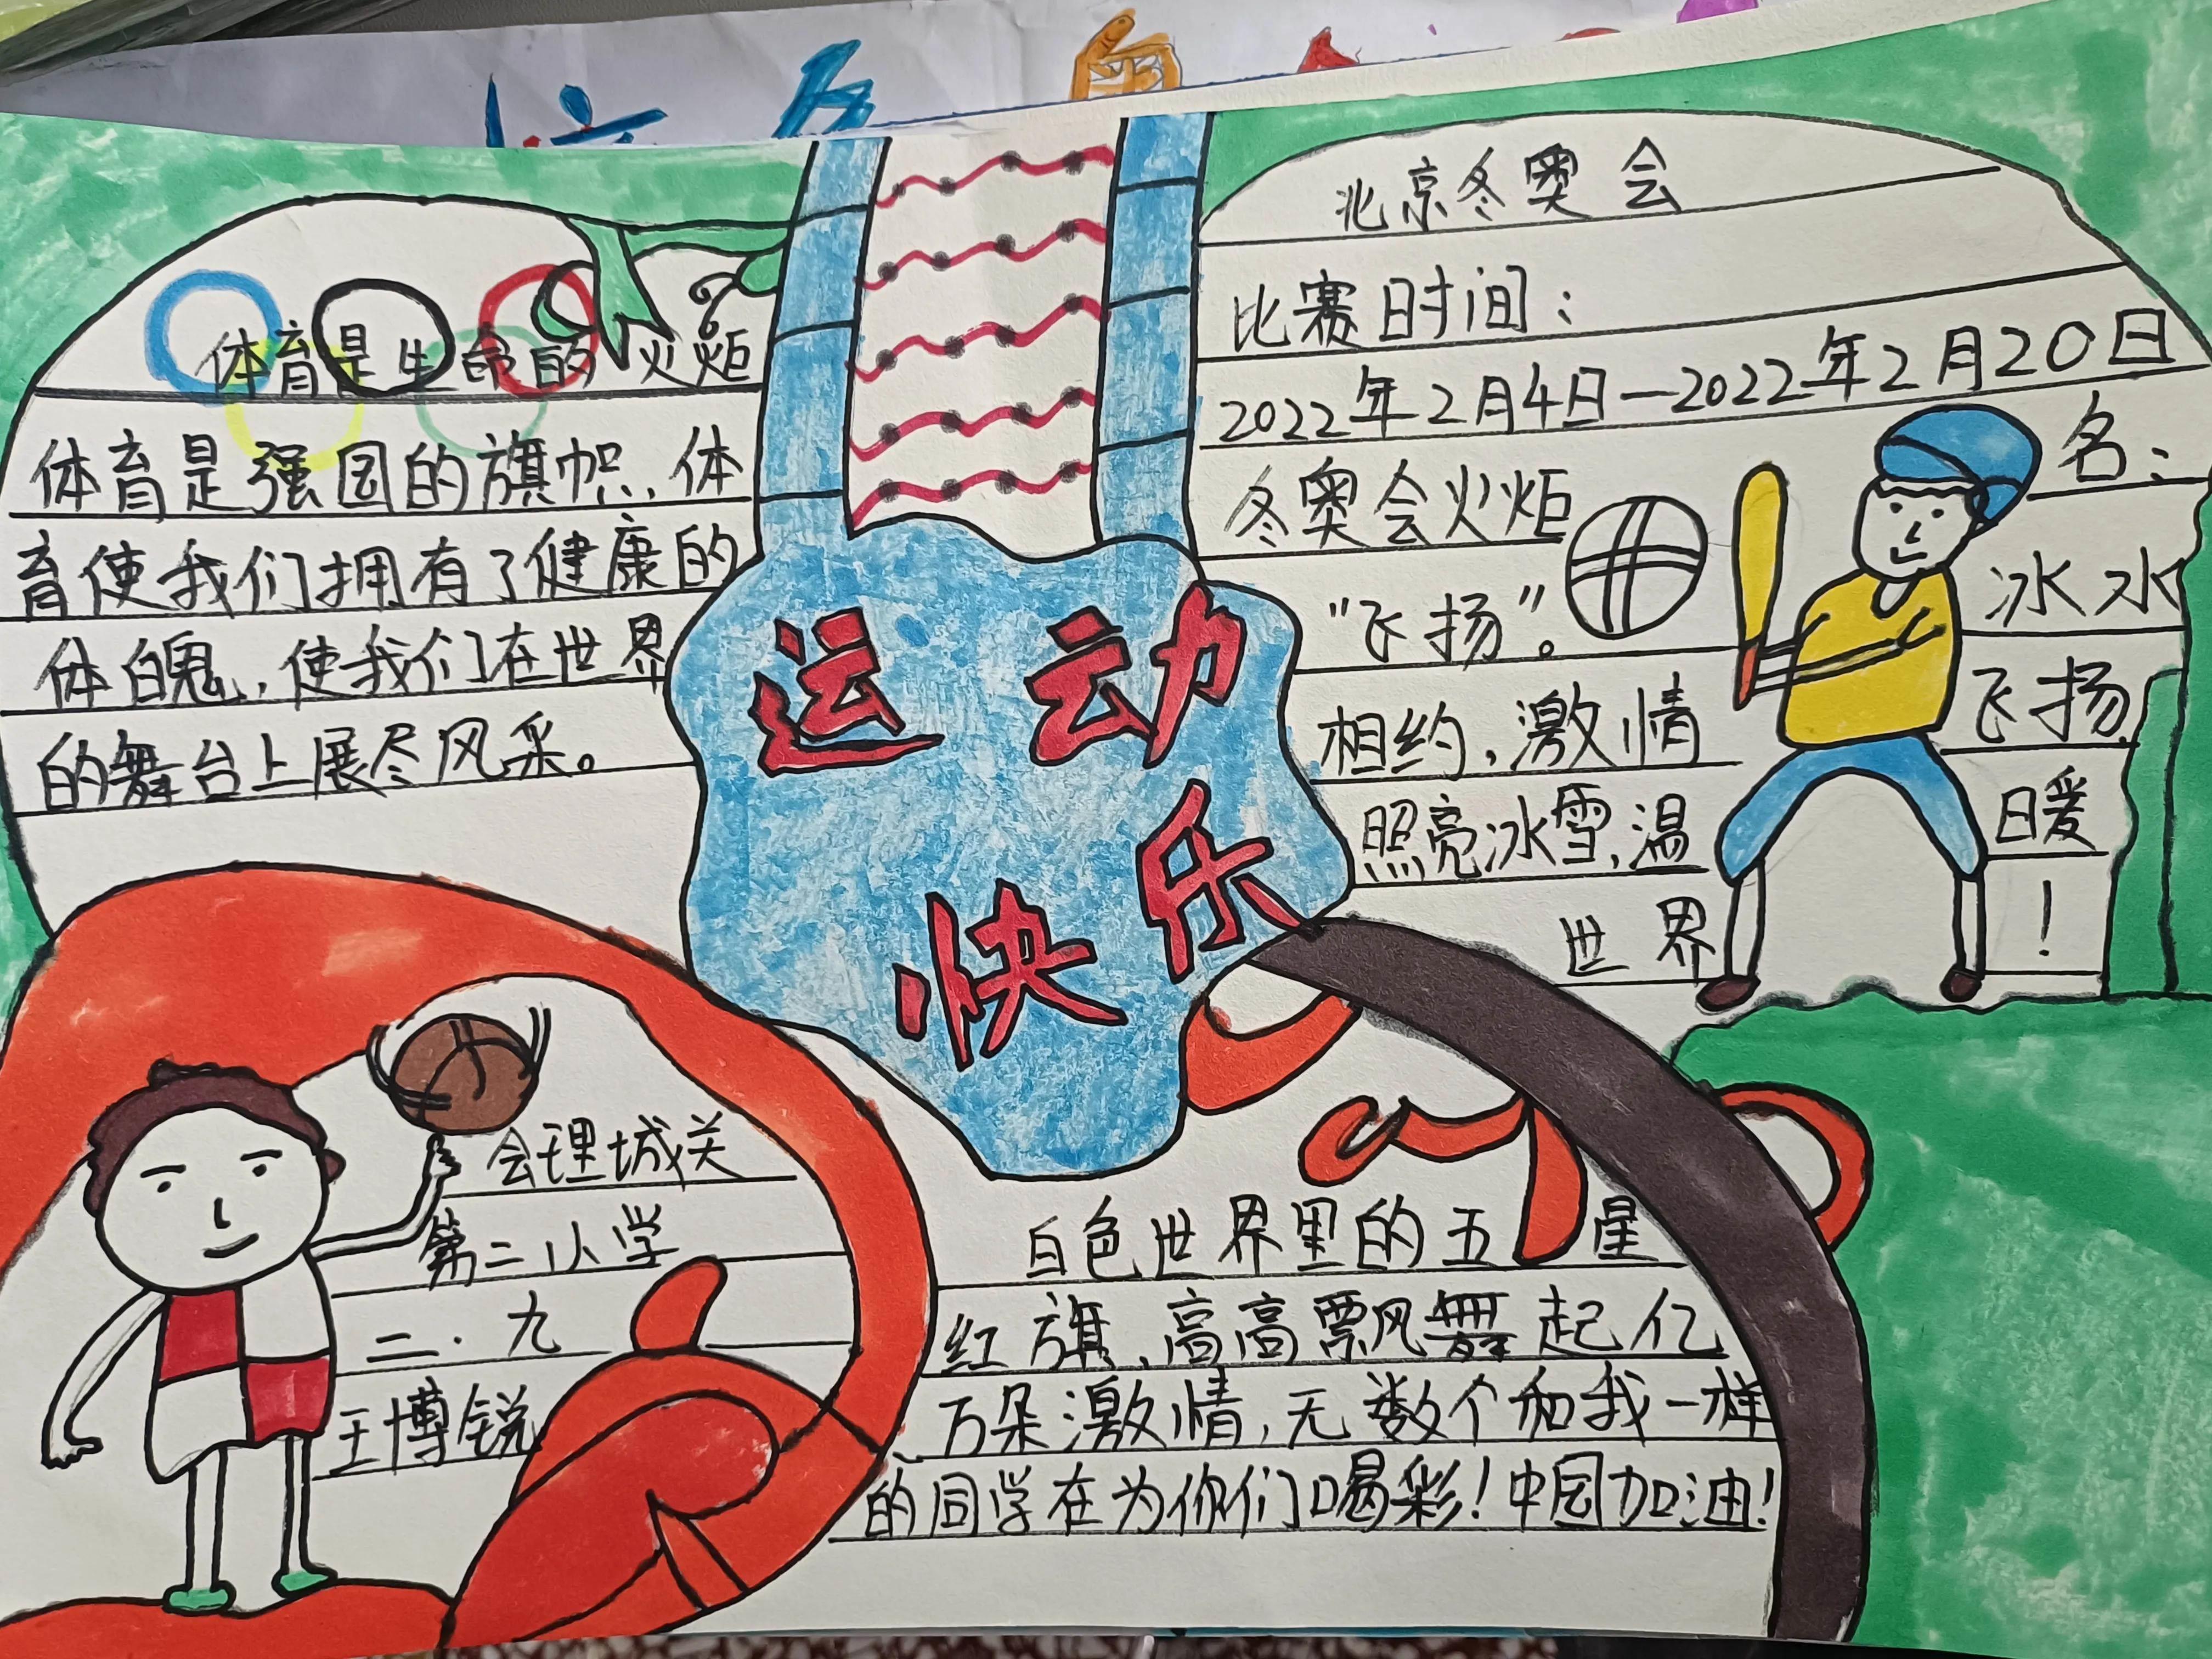 体育是生命的火炬
体育是强国的旗帜,体
育使我们拥有了健康的
体魄,使我们在世界
的舞台上展尽风采。
运动
快乐
北京冬奥会
比赛时间:
2022年2月4日—2022年2月20日
冬奥会火炬名:
“飞扬”。冰水
相约,激情飞扬,
照亮冰雪,温暖
世界!
会理城关
第二小学
二·九
王博锐
白色世界里的五星
红旗,高高飘舞起亿
万朵激情,无数个和我一样
的同学在为你们喝彩!中国加油!